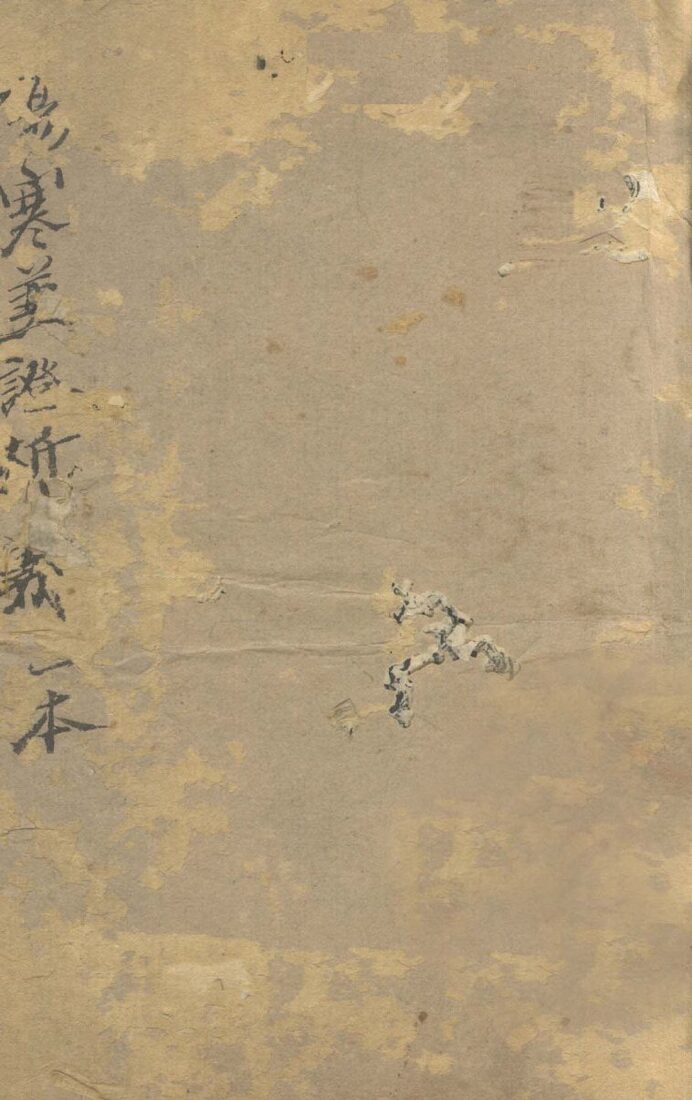 傷寒兼證析義一本